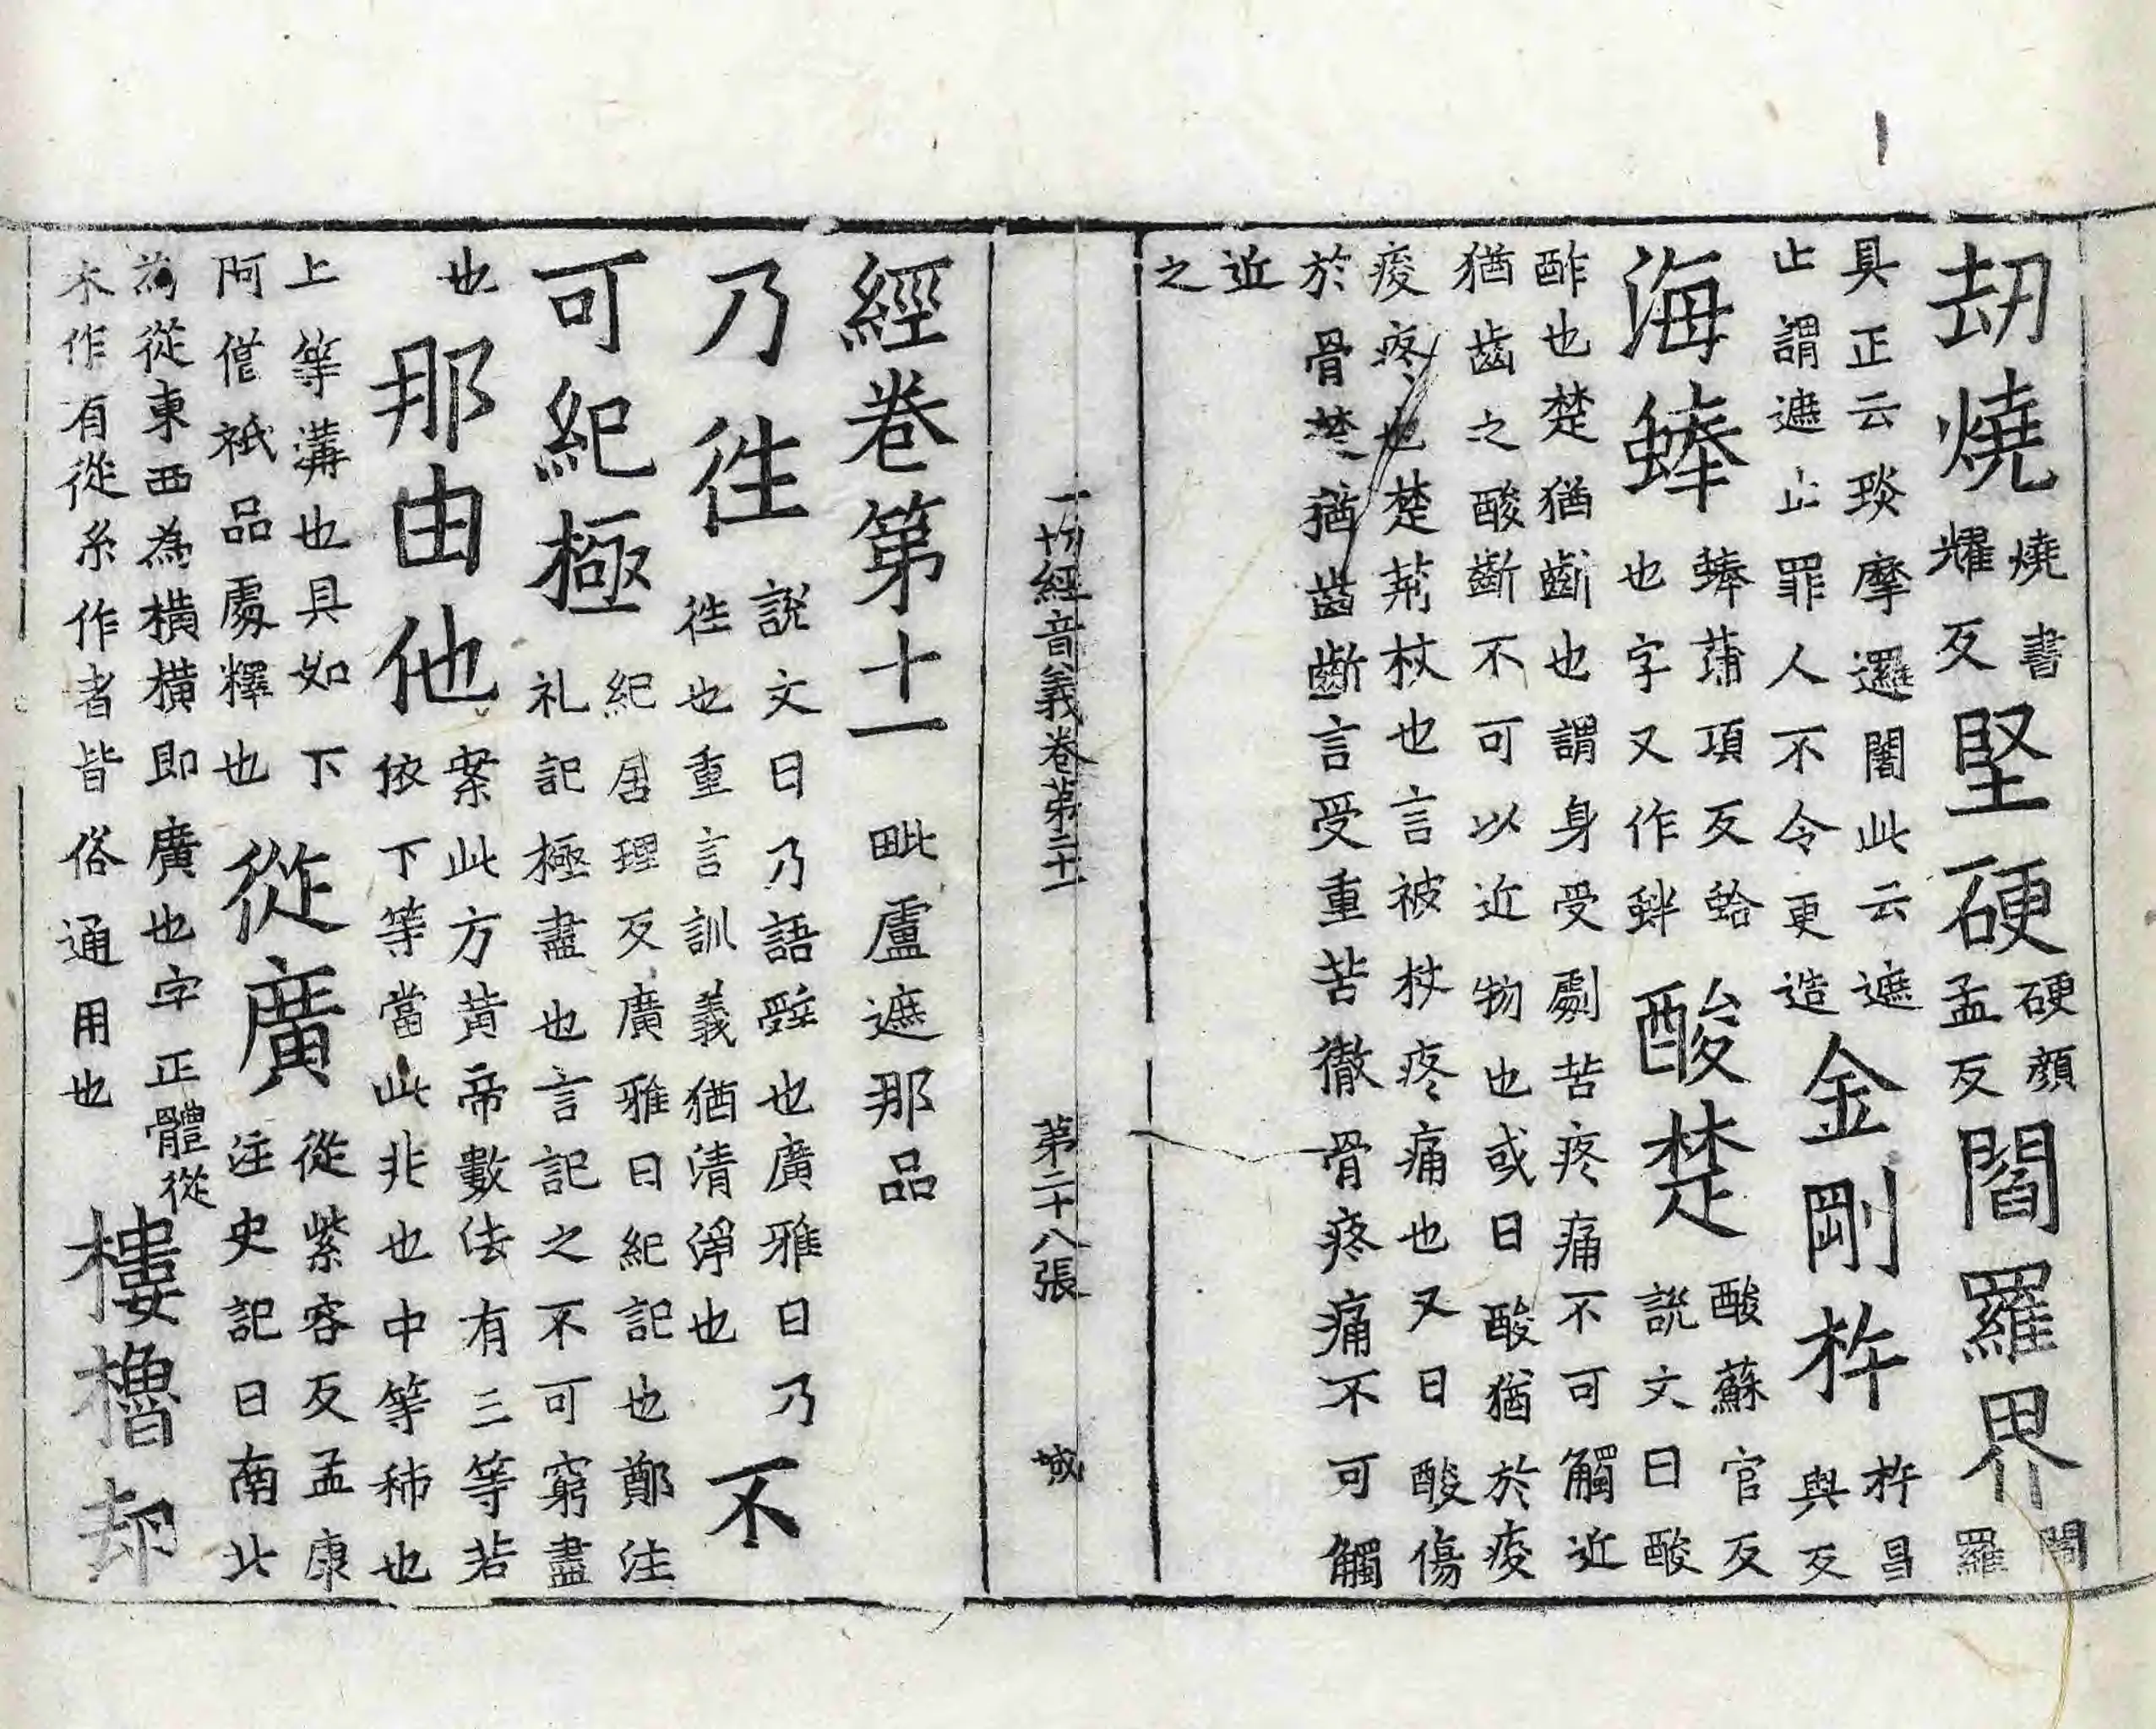 劫燒燒書耀反堅硬硬顏孟反閻羅界閻羅
具正云琰摩邏闍此云遮止謂遮止罪人不令更造金剛杵杵昌與反
海蜯蜯蒲項反蛤也字又作蚌酸楚酸蘇官反說文曰酸
酢也楚猶齗也謂身受劇苦疼痛不可觸近猶齒之酸齗不可以近物也或曰酸猶於痠
痠疼也楚荊杖也言被杖疼痛也又曰酸傷於骨楚猶齒齗言受重苦徹骨疼痛不可觸
近之
一切經音義卷苐二十一 苐二十八張 城
經卷第十一 毗盧遮那品
乃往說文曰乃語辤也廣雅曰乃往也重言訓義猶清淨也不
可紀極紀居理反廣雅曰紀記也鄭注礼記極盡也言記之不可窮盡
也那由他案此方黃帝數法有三等若依下等當此非也中等秭也
上等溝也具如下阿僧祇品處釋也從廣從紫容反孟康注史記曰南北
為從東西為橫橫即廣也字正體從木作有從糸作者皆俗通用也樓櫓却